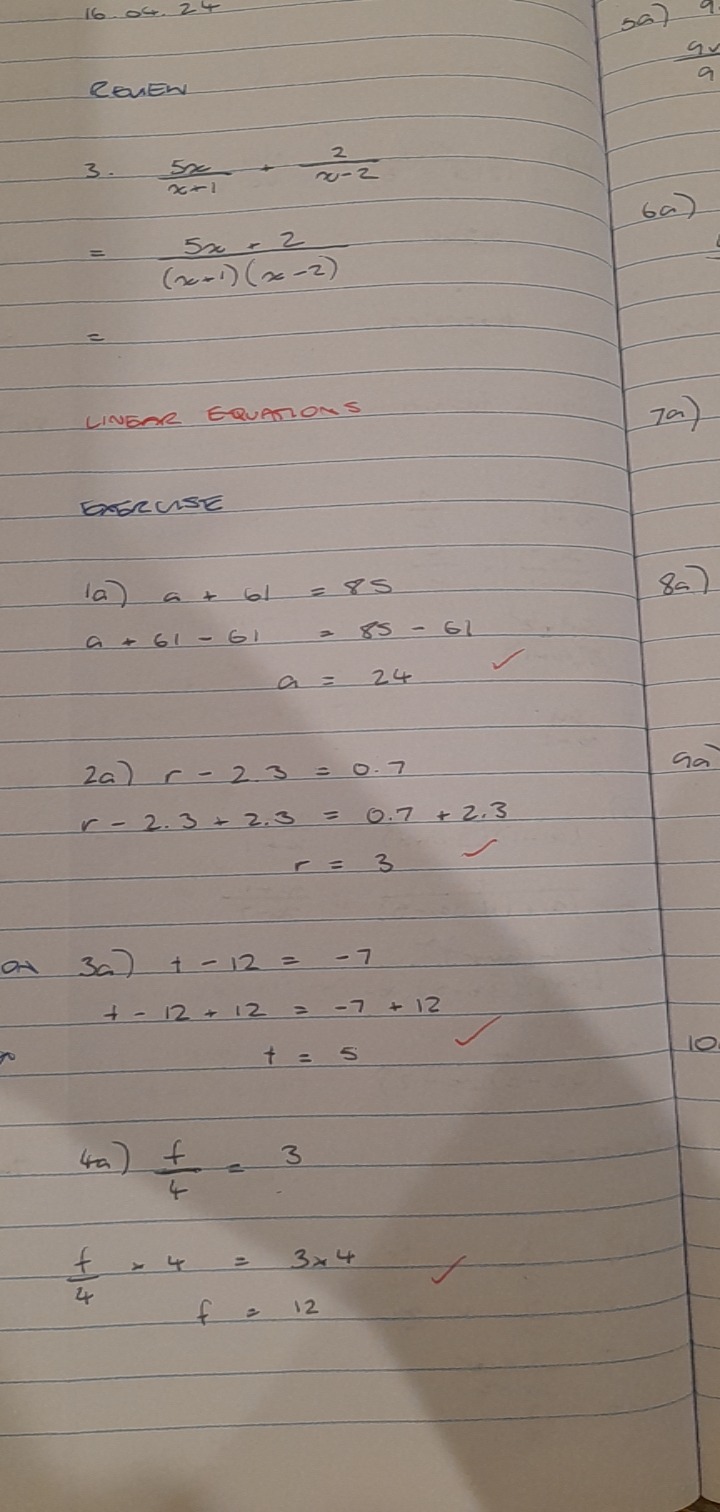 16.04.24
REVIEW
3. 5x/x+1 + 2/x-2
= 5x + 2/(x+1)(x-2)
=
LINEAR EQUATIONS
EXERCISE
1a) a + 61 = 85
a + 61 - 61 = 85 - 61
a = 24 ✓
2a) r - 2.3 = 0.7
r - 2.3 + 2.3 = 0.7 + 2.3
r = 3 ✓
3a) t - 12 = -7
t - 12 + 12 = -7 + 12
t = 5 ✓
4a) f/4 = 3
f/4 × 4 = 3×4 ✓
f = 12
5a)
6a)
7a)
8a)
9a)
10.